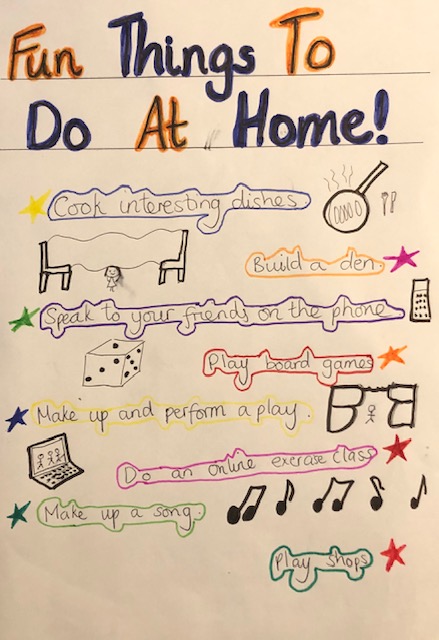 Fun Things To
Do At Home!
Cook interesting dishes.
Build a den.
Speak to your friends on the phone
Play board games
Make up and perform a play.
Do an online exercise class
Make up a song.
Play shops